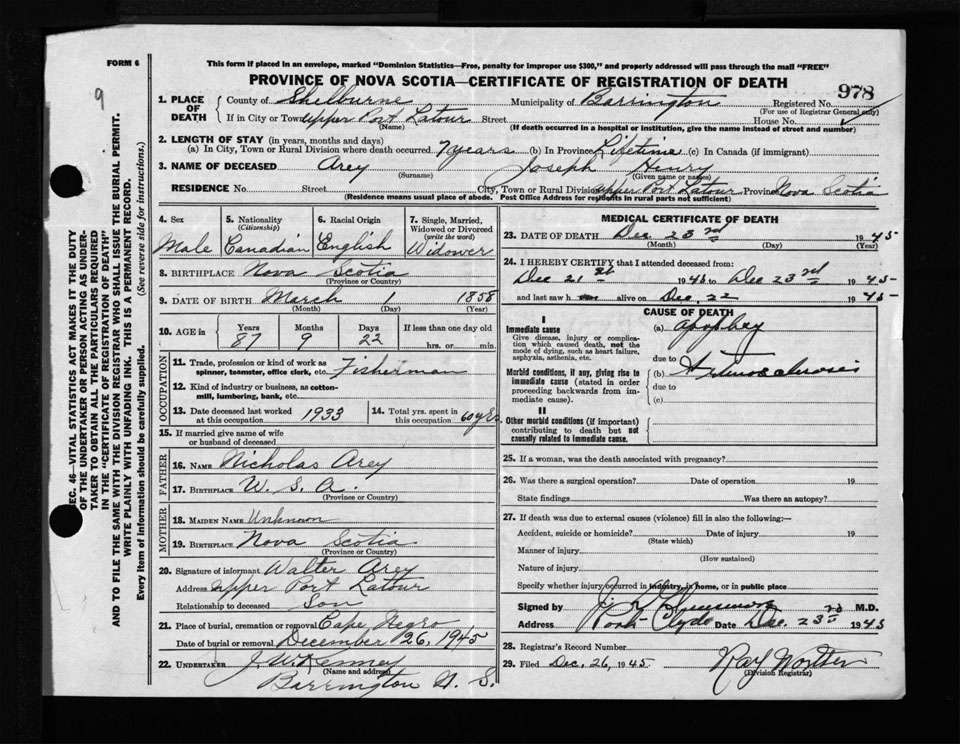 FORM 6
This form if placed in an envelope, marked "Dominion Statistics—Free, penalty for improper use $300," and properly addressed will pass through the mail "FREE"
PROVINCE OF NOVA SCOTIA—CERTIFICATE OF REGISTRATION OF DEATH
9
978
1. PLACE OF DEATH
County of Shelburne Municipality of Barrington Registered No.
(For use of Registrar General only)
If in City or Town Upper Port Latour Street House No.
(Name) (If death occurred in a hospital or institution, give the name instead of street and number)
2. LENGTH OF STAY (in years, months and days)
(a) In City, Town or Rural Division where death occurred 7 years (b) In Province Lifetime (c) In Canada (if immigrant)
3. NAME OF DECEASED Arey Joseph Henry
(Surname) (Given name or names)
RESIDENCE No. Street City, Town or Rural Division Upper Port Latour Province Nova Scotia
(Residence means usual place of abode. Post Office Address for residents in rural parts not sufficient)
4. Sex
Male
5. Nationality
(Citizenship)
Canadian
6. Racial Origin
English
7. Single, Married, Widowed or Divorced
(write the word)
Widower
8. BIRTHPLACE Nova Scotia
(Province or Country)
9. DATE OF BIRTH March 1 1858
(Month) (Day) (Year)
10. AGE in
Years Months Days If less than one day old
87 9 22 hrs. or min.
OCCUPATION
11. Trade, profession or kind of work as
spinner, teamster, office clerk, etc. Fisherman
12. Kind of industry or business, as cotton-
mill, lumbering, bank, etc.
13. Date deceased last worked
at this occupation 1933
14. Total yrs. spent in
this occupation 60 yrs.
15. If married give name of wife
or husband of deceased
FATHER
16. NAME Nicholas Arey
17. BIRTHPLACE U. S. A.
(Province or Country)
MOTHER
18. MAIDEN NAME Unknown
19. BIRTHPLACE Nova Scotia
(Province or Country)
20. Signature of informant Walter Arey
Address Upper Port Latour
Relationship to deceased Son
21. Place of burial, cremation or removal Cape Negro
Date of burial or removal December 26, 1945
22. UNDERTAKER J. W. Kenney
(Name and address)
Barrington N. S.
MEDICAL CERTIFICATE OF DEATH
23. DATE OF DEATH Dec 23rd 1945
(Month) (Day) (Year)
24. I HEREBY CERTIFY that I attended deceased from:
Dec 21st 1945 to Dec 23rd 1945
and last saw h alive on Dec. 22 1945
CAUSE OF DEATH
I
Immediate cause
Give disease, injury or complication which caused death, not the mode of dying, such as heart failure, asphyxia, asthenia, etc.
(a)
due to
Morbid conditions, if any, giving rise to immediate cause (stated in order proceeding backwards from immediate cause).
(b) Arteriosclerosis
due to
(c)
II
Other morbid conditions (if important) contributing to death but not causally related to immediate cause.
25. If a woman, was the death associated with pregnancy?
26. Was there a surgical operation? Date of operation 19
State findings Was there an autopsy?
27. If death was due to external causes (violence) fill in also the following:—
Accident, suicide or homicide? Date of injury 19
(State which)
Manner of injury
(How sustained)
Nature of injury
Specify whether injury occurred in industry, in home, or in public place
Signed by M.D.
Address North Clyde Date Dec. 23rd 1945
28. Registrar's Record Number
29. Filed Dec. 26, 1945
(Division Registrar)
SEC. 46—VITAL STATISTICS ACT MAKES IT THE DUTY
OF THE UNDERTAKER OR PERSON ACTING AS UNDER-
TAKER TO OBTAIN ALL THE PARTICULARS REQUIRED
IN THE "CERTIFICATE OF REGISTRATION OF DEATH"
AND TO FILE THE SAME WITH THE DIVISION REGISTRAR WHO SHALL ISSUE THE BURIAL PERMIT.
WRITE PLAINLY WITH UNFADING INK. THIS IS A PERMANENT RECORD.
Every item of information should be carefully supplied. (See reverse side for instructions.)